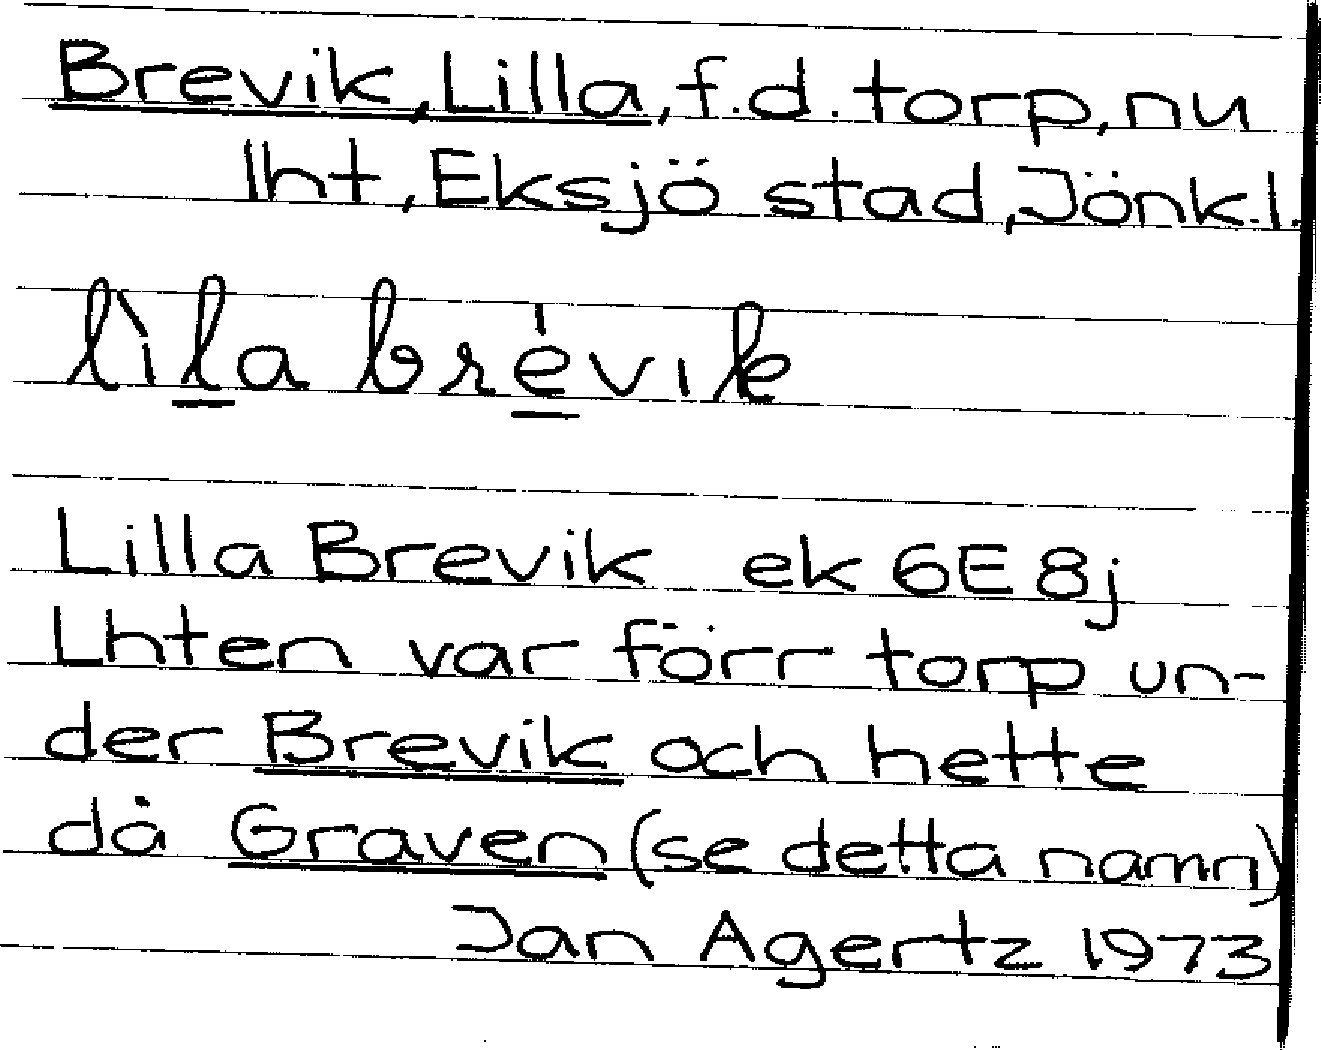 Brevik, Lilla, f.d. torp, nu
lht, Eksjö stad, Jönk.l.
lìla brévik
Lilla Brevik ek 6E8j
Lhten var förr torp un-
der Brevik och hette
då Graven (se detta namn)
Jan Agertz 1973